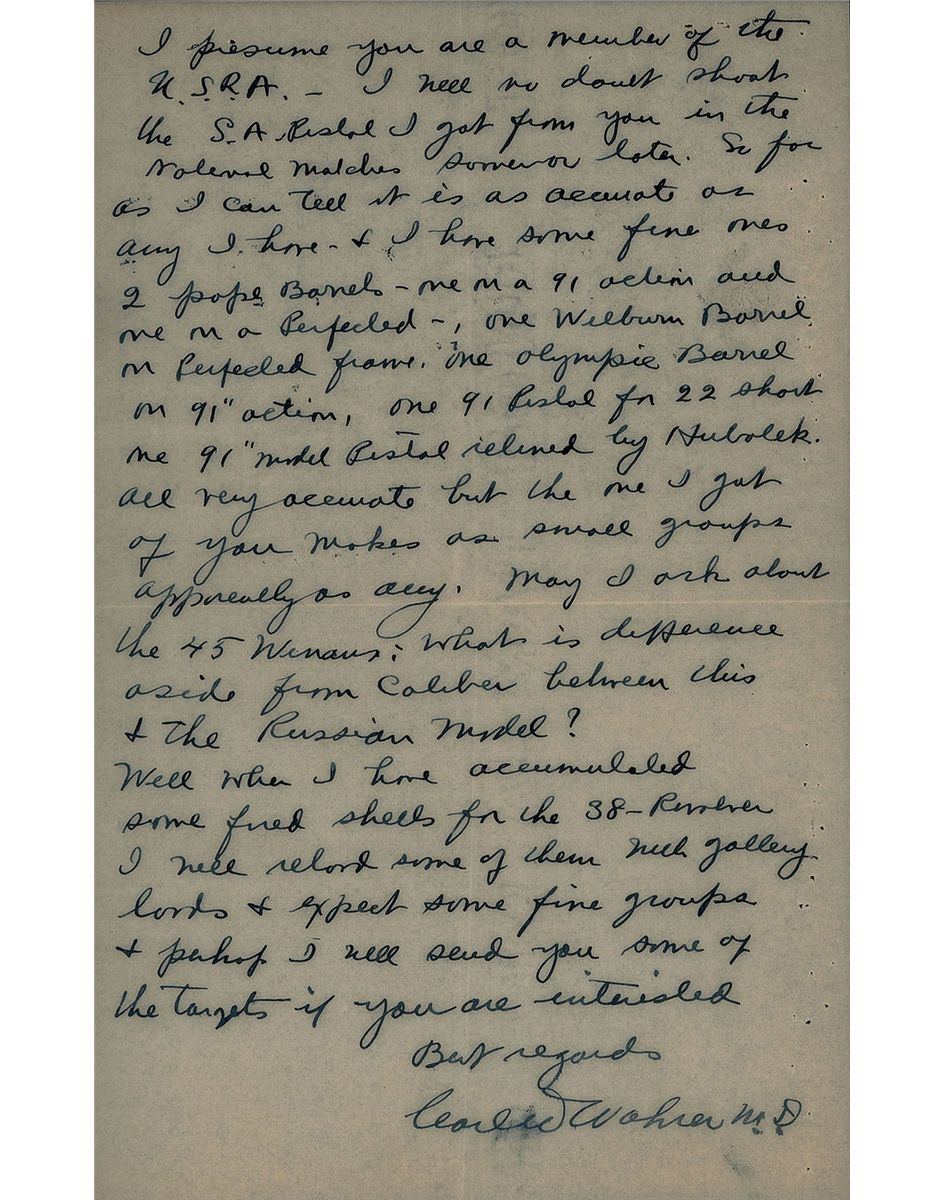 I presume you are a member of the
U.S.R.A. - I will no doubt shoot
the S.A. Pistol I got from you in the
National Matches sometime later. So far
as I can tell it is as accurate as
any I have - & I have some fine ones
2 pope Barrels - one on a 91 action and
one on a Perfected -, one Wilburn Barrel
on Perfected frame. One olympic Barrel
on 91" action, one 91 Pistol for 22 short
one 91" model Pistol relined by Hubalek.
All very accurate but the one I got
of you makes as small groups
apparently as any. May I ask about
the 45 Winans; What is difference
aside from Caliber between this
& the Russian Model?
Well when I have accumulated
some fired shells for the 38-Revolver
I will reload some of them with gallery
loads & expect some fine groups
& perhap I will send you some of
the targets if you are interested
Best regards
Wahrer M.D.